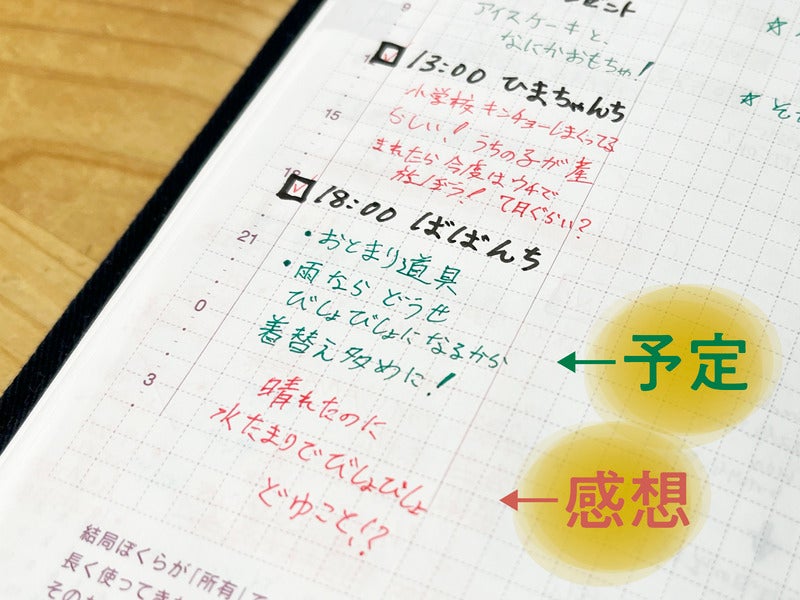 アイスケーキと、
なにかおもちゃ!
13:00 ひまちゃんち
小学校 キンチョーしまくってる
らしい! うちの子が産
まれたら今度はウチで
18:00 ばばんち
・おとまり道具
・雨なら どうせ
びしょびしょになるから
着替え多めに!
晴れたのに
水たまりでびしょびしょ
どゆこと!?
9
15
21
0
3
←予定
←感想
結局ぼくらが「所有」
長く使ってき